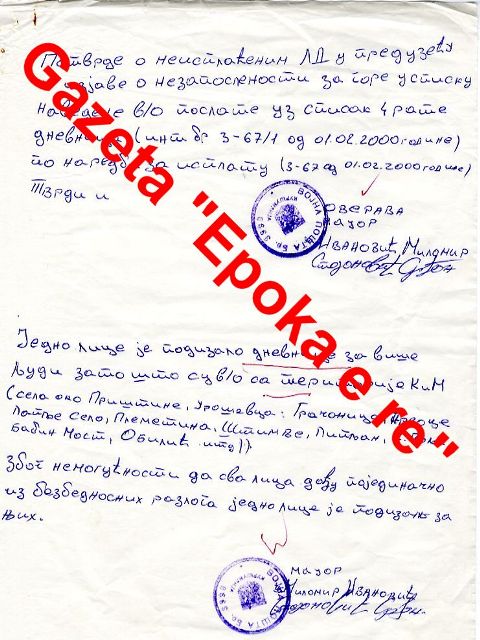 Потврде о неисплаћеним ЛД у предузећу
изјаве о незапослености за горе у списку
наведене в/о послате уз списак 4 рате
дневница (инт бр 3-67/1 од 01.02.2000 године)
по наредби за исплату (3-67 од 01.02.2000 године)
Тврди и
ОВЕРАВА
мајор
Ивановић Миломир
ВОЈНА ПОШТА Бр. 5999
КУРШУМЛИЈА
Gazeta "Epoka e re"
Једно лице је подизало дневнице за више
људи зато што су в/о са територије КиМ
(села око Приштине, Урошевца: Грачаница,
село, Племетина, Штимље,
Бабин Мост, Обилић итд))
због немогућности да сва лица дођу појединачно
из безбедносних разлога једно лице је подизало за
њих.
мајор
Миломир Ивановић
ВОЈНА ПОШТА Бр. 5999